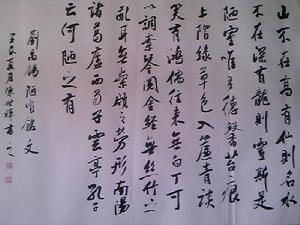 山不在高有仙則名水
不在深有龍則靈斯是
陋室唯吾德馨苔痕
上階綠草色入簾青談
笑有鴻儒往來無白丁可
以調素琴閱金經無絲竹之
亂耳無案牘之勞形南陽
諸葛廬西蜀子雲亭孔子
云何陋之有
劉禹錫陋室銘文
夏月陳世